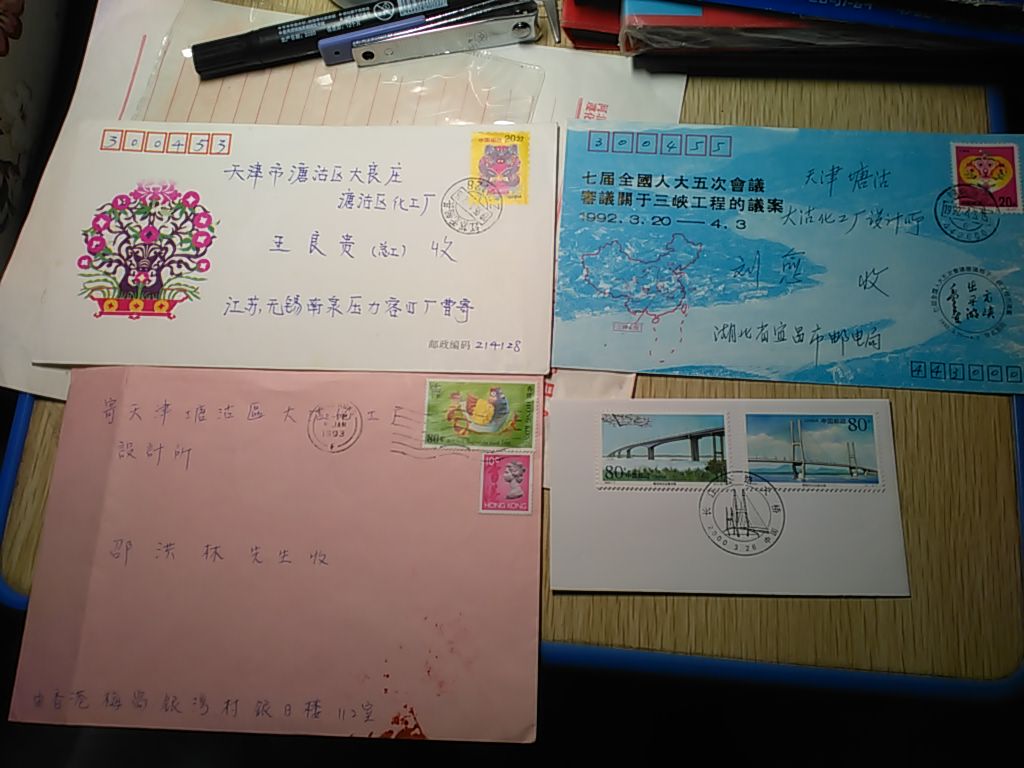 300453
中国邮政
20分
天津市瀍沽区大良庄
瀍沽区化工厂
王良贵(总工) 收
江苏无锡南泉压力容口厂曹寄
邮政编码 214128
300455
七届全國人大五次會議
審議關于三峽工程的議案
1992.3.20——4.3
20分
天津塘沽
大沽化工厂设计所
刘 收
湖北省宜昌市邮电局
443000
寄天津塘沽區大沽化工厂
設計所
邵洪林先生收
由香港梅窩銀灣村銀日樓112室
JAN
1993
80¢
HONG KONG
10¢
HONG KONG
80分
中国邮政
中国邮政
80分
长江 大桥
2000.3.26